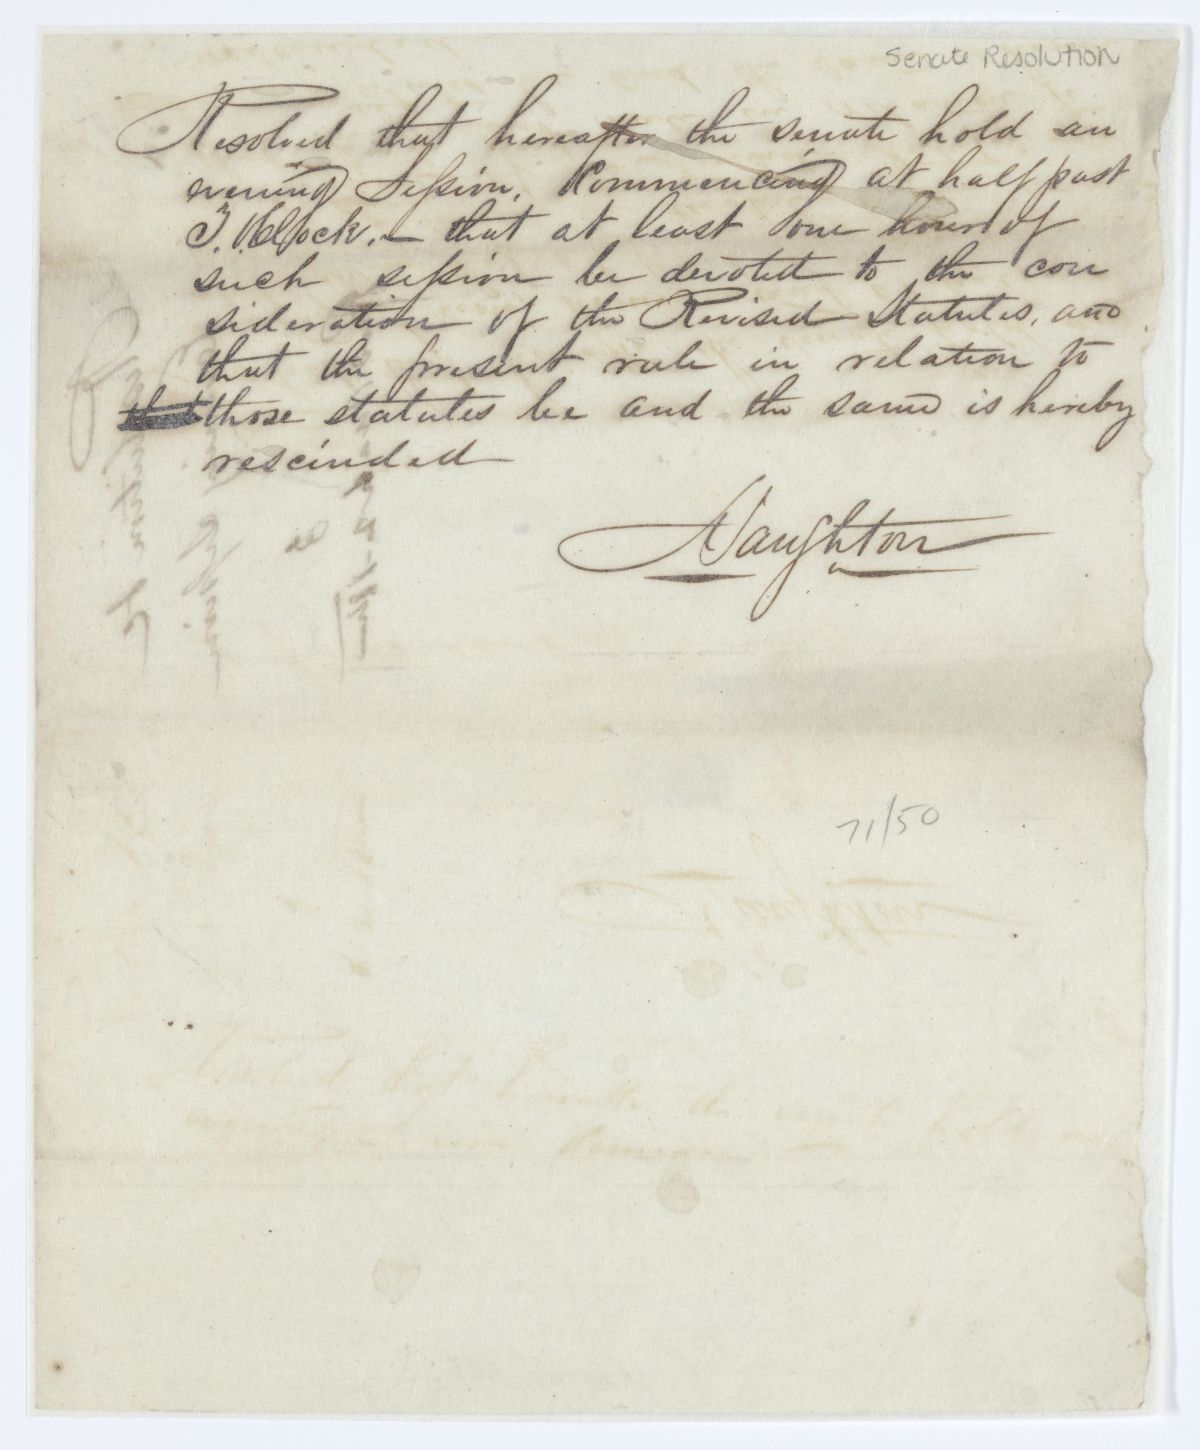 Senate Resolution
Resolved that hereafter the senate hold an
evening Session, Commencing at half past
7. OClock. — that at least one hour of
such session be devoted to the con
sideration of the Revised Statutes, and
that the present rule in relation to
those statutes be and the same is hereby
rescinded
Naughton
71/50